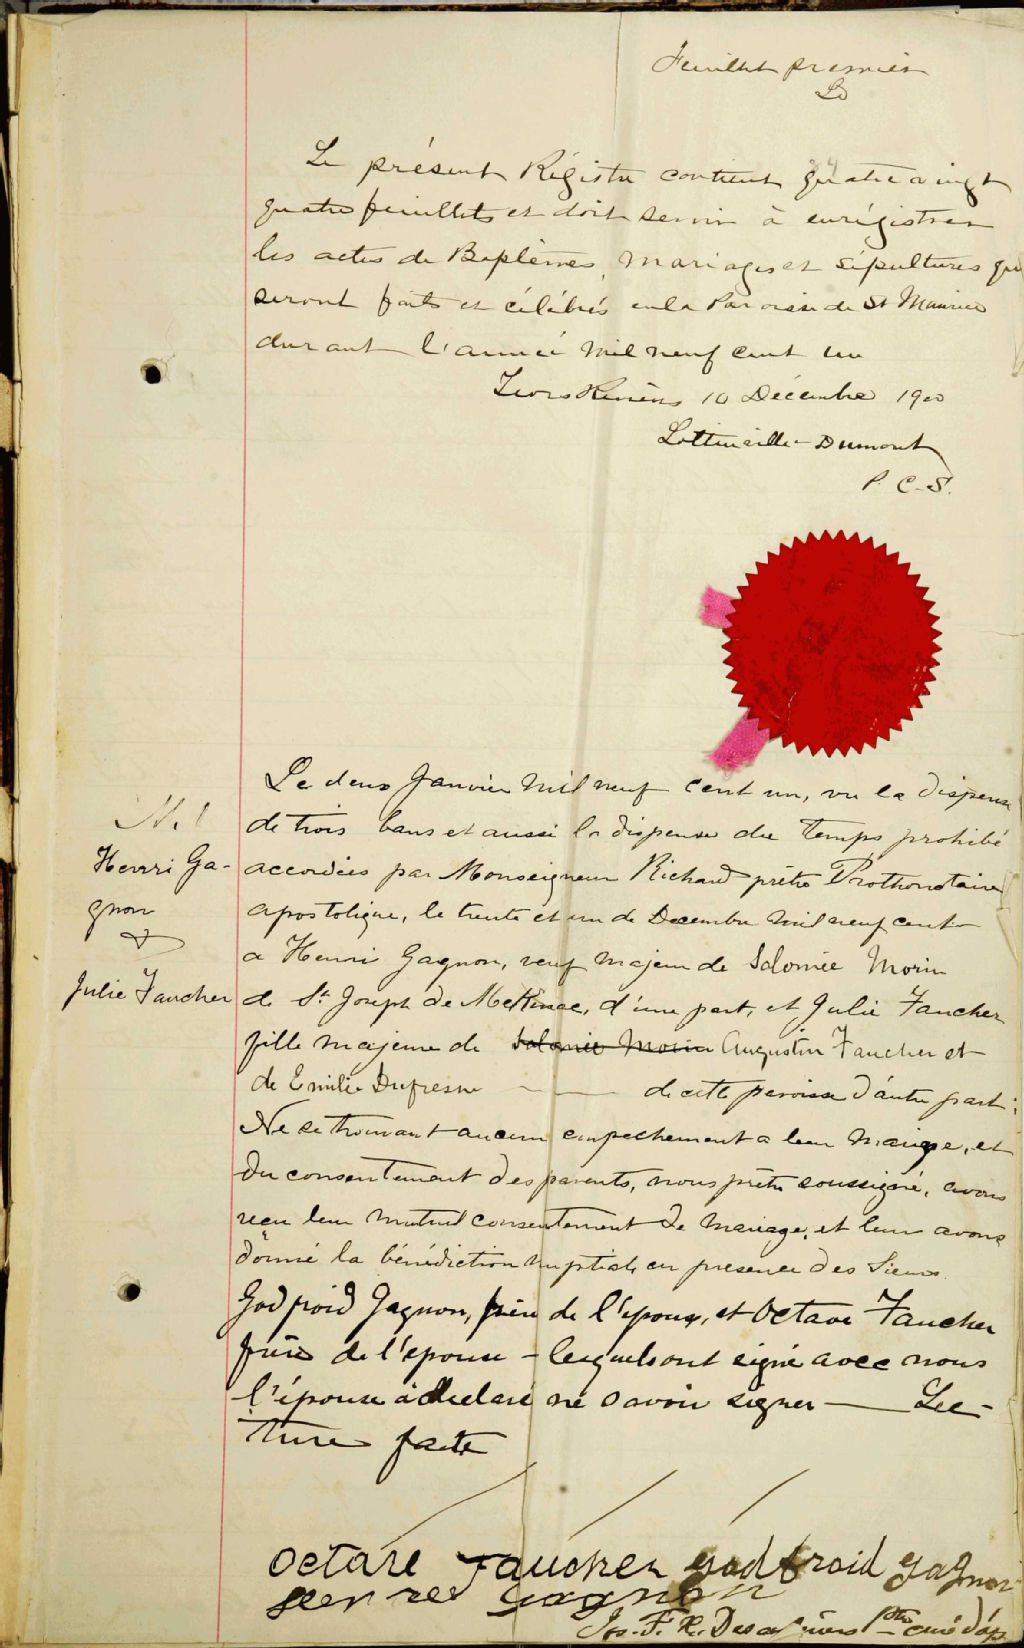 Feuillet premier
LD
Le présent Régistre contient quatre vingt
quatre feuillets et doit servir à enrégistrer
les actes de Baptêmes, mariages et sépultures qui
seront faits et célébrés en la Paroisse de St Maurice
durant l'année mil neuf cent un
Trois Rivières 10 Décembre 1900
Lottinville-Dumont
P. C. S.
Le deux Janvier mil neuf cent un, vu la dispense
N. 1
de trois bans et aussi la dispense du temps prohibé
Henri Ga-
accordées par Monseigneur Richard prêtre Prothonotaire
gnon
apostolique, le trente et un de Decembre mil neuf cent
&
a Henri Gagnon, veuf majeur de Salomée Morin
Julie Faucher
de St Joseph de Mekinac, d'une part, et Julie Faucher
fille majeure de Salomée Morin Augustin Faucher et
de Emilie Dufresne de cette paroisse d'autre part:
Ne se trouvant aucun empechement a leur mariage, et
du consentement des parents, nous prêtre soussigné, avons
reçu leur mutuel consentement de mariage, et leur avons
donné la bénédiction nuptiale en presence des Sieurs
Godfroid Gagnon, père de l'epoux, et Octave Faucher
frère de l'epouse – lesquels ont signé avec nous
l'épouse a declaré ne savoir signer — Lec-
ture faite
octave Faucher godfroid gagnon
Henri gagnon
Jos. F. R. Desaulniers Ptre curé